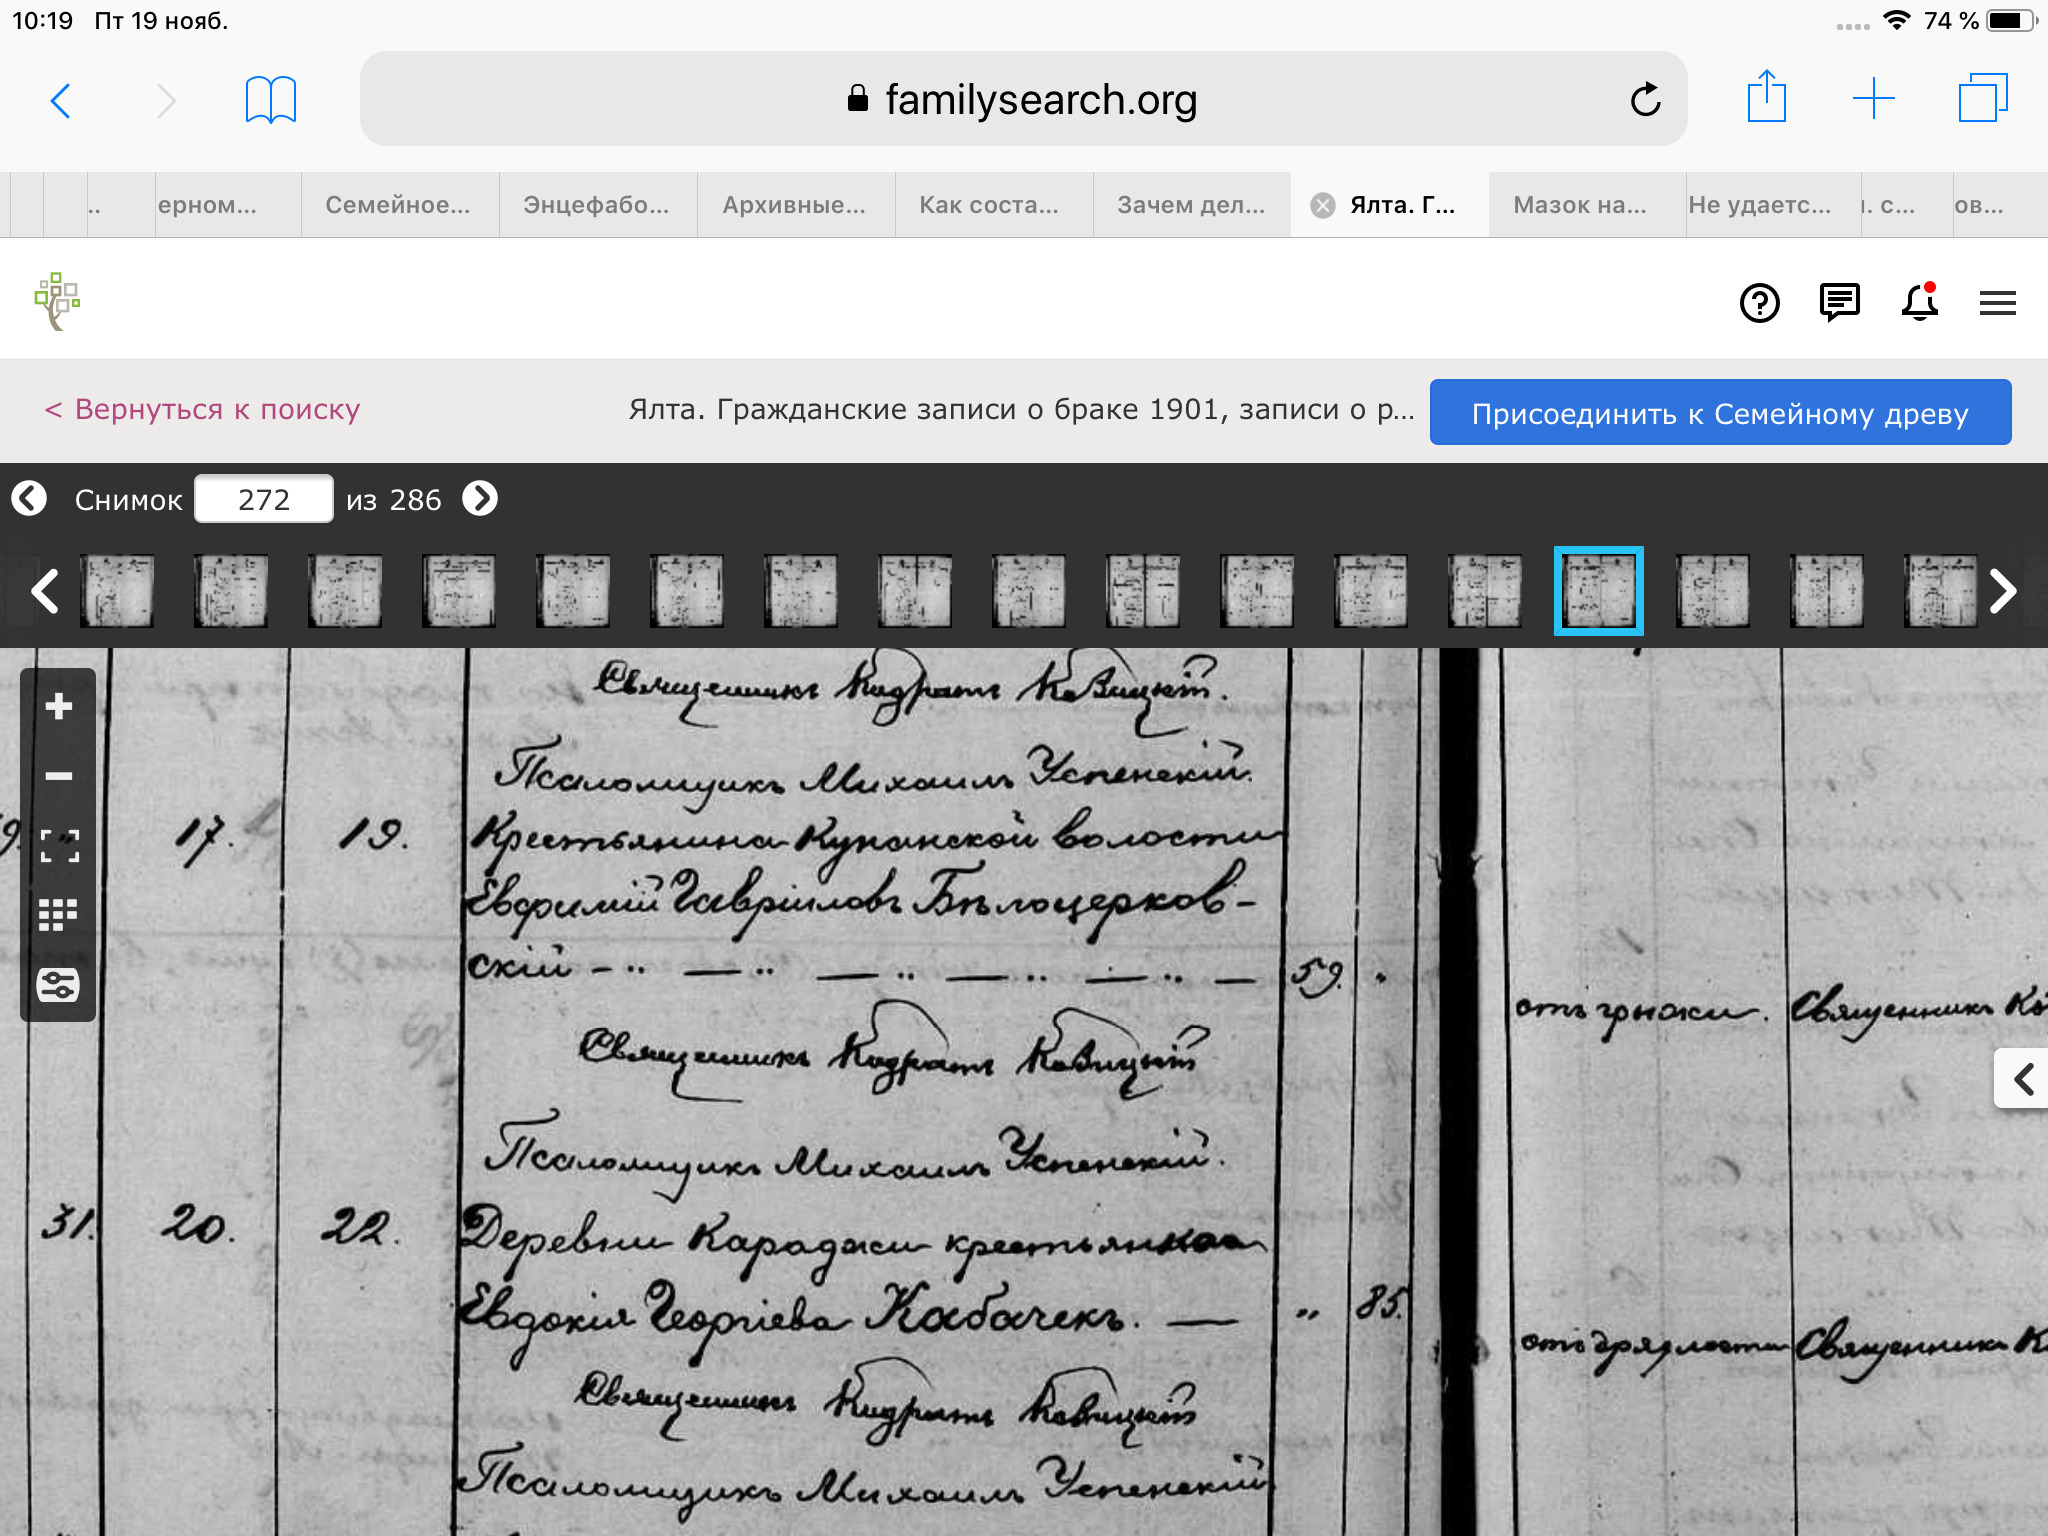 10:19 Пт 19 нояб.
74 %
familysearch.org
..
ерном...
Семейное...
Энцефабо...
Архивные...
Как соста...
Зачем дел...
Ялта. Г...
Мазок на...
Не удаетс...
. с...
ов...
< Вернуться к поиску
Ялта. Гражданские записи о браке 1901, записи о р...
Присоединить к Семейному древу
Снимок 272 из 286
Священникъ Кодратъ Ковицкій.
Псаломщикъ Михаилъ Успенскій.
17. 19. Крестьянина Кунанской волости
Евфимій Гавріиловъ Бѣлоцерков-
скій – " — " — " — " — " — 59. "
отъ грыжи. Священникъ Ко
Священникъ Кодратъ Ковицкій
Псаломщикъ Михаилъ Успенскій.
31. 20. 22. Деревни Караджи крестьянка
Евдокія Георгіева Кабачекъ. — " 85.
отъ дряхлости Священникъ К
Священникъ Кодратъ Ковицкій
Псаломщикъ Михаилъ Успенскій